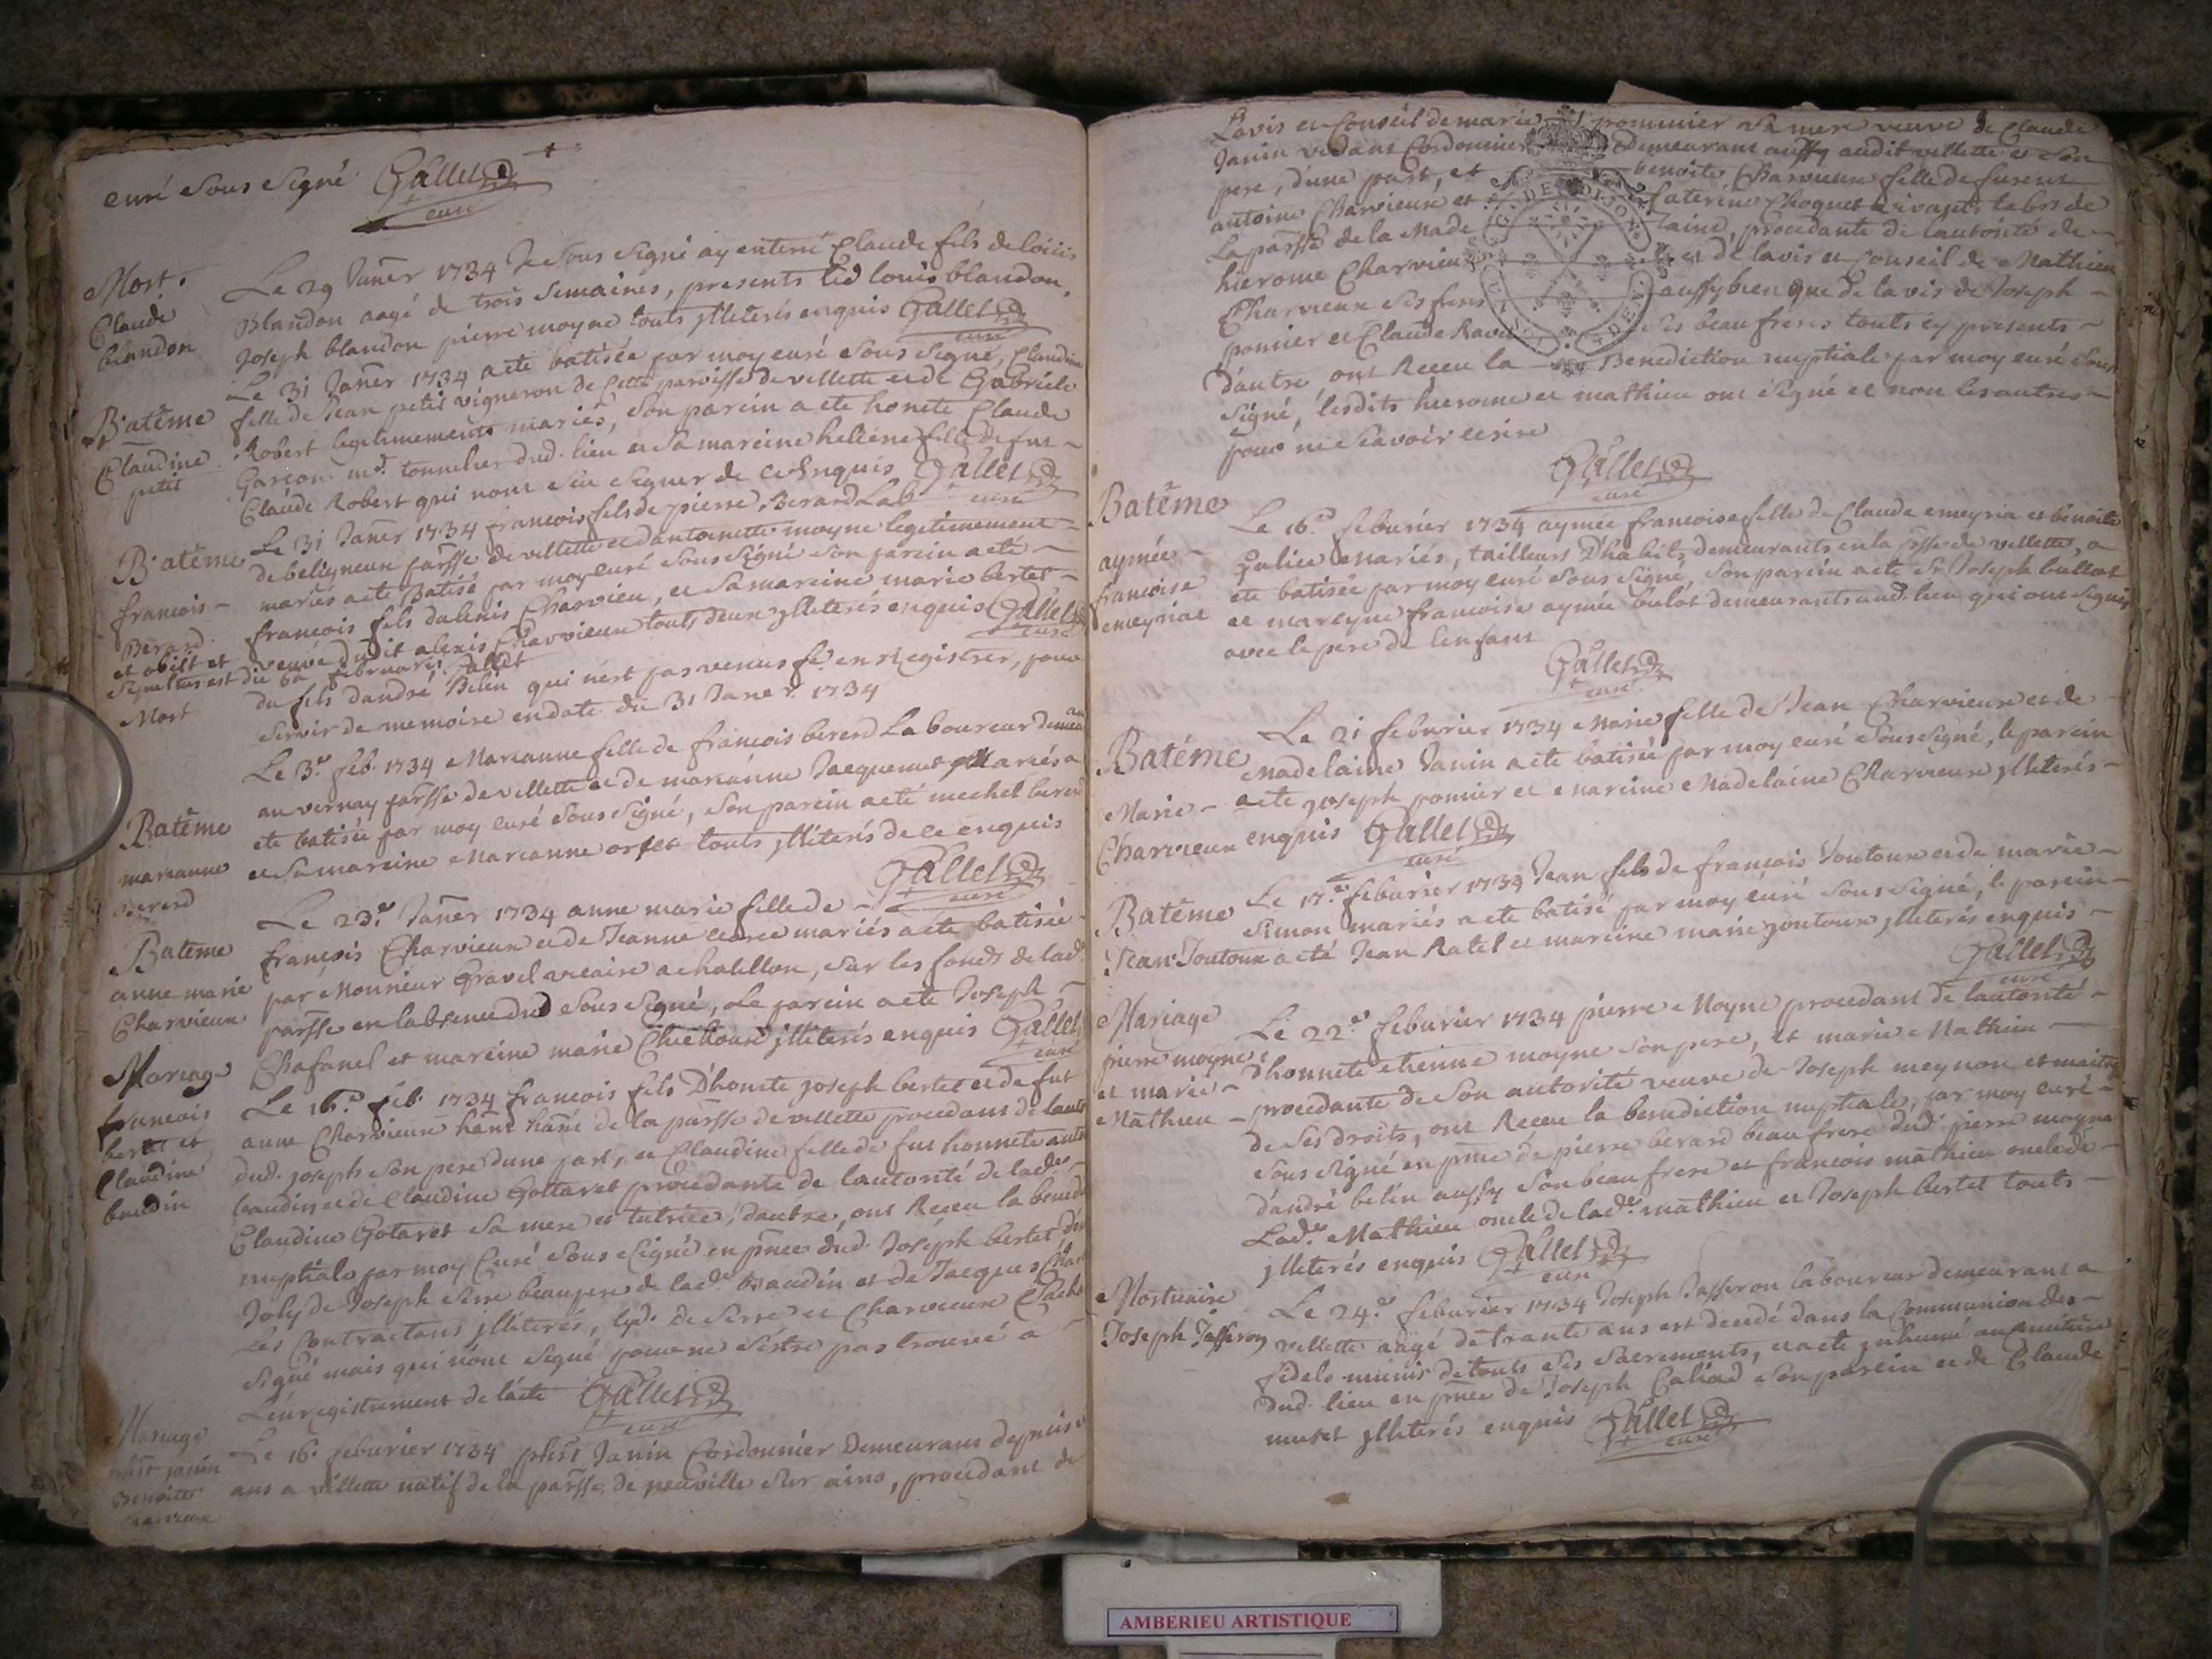 curé sous signé Gallet
curé
Mort.
Claude
blandon
Le 29 Janer 1734 Je sous signé ay enterré Claude fils de loüis
Blandon aagé de trois semaines, presents led louis blandon,
Joseph blandon pierre moyne touts jlliterés enquis Gallet
curé
Batême
Claudine
petit
Le 31 Janer 1734 a eté batisée par moy curé sous signé, Claudine
fille de Jean petit vigneron de cette paroisse de villette et de Gabriele
Robert legitimements mariés, son parein a eté honete Claude
Garçon md. tonnelier dud. lieu et sa mareine heleine fille de fut
Claude Robert qui nont sceu signer de ce enquis Gallet
curé
Batême
francois
Berard
et obiit et
sepultus est die 6a februarii Gallet
Le 31 Janer 1734 francois fils de pierre Berard Lab
de beligneux parsse de villette et dantoinette moyne legitimement
mariés a eté Batisé par moy curé sous signé son parein a eté
francois fils dalexis Charvieu, et sa mareine marie bertet
veuve dudit alexis Charvieux touts deux jlliterés enquis Gallet
curé
Mort
du fils dandré Belin qui nest pas venus se enregistrer, pour
servir de memoire en date du 31 Janer 1734
Batême
marianne
Bererd
Le 3e. feb. 1734 Marianne fille de francois bererd Laboureur demeu
au vernay parsse de villette et de marianne Jacquemet mariés a
ete batisée par moy curé sous signé, son parein a eté michel bererd
et sa mareine Marianne orset touts jlliterés de ce enquis
Gallet
curé
Bateme
anne marie
Charvieux
Le 23e. Janer 1734 anne marie fille de
francois Charvieux et de Jeanne mariés a ete batisée
par Monsieur Gravel vicaire a chatillon, sur les fonds de lad.
parsse en labsence dud sous signé, le parein a ete Joseph
Chafanel et mareine marie jlliterés enquis Gallet
curé
Mariage
francois
bertet et
Claudine
baudin
Le 16e. feb. 1734 francois fils Dhonete joseph bertet et de fut
anne Charvieux de la parsse de villette procedant de lauto
dud. joseph son pere dune part, et Claudine fille de fut honnete anto
baudin et de Claudine Gottaret procedante de lautorité de lade.
Claudine Gotaret sa mere et tutrice, dautre, ont Receu la bened
nuptiale par moy Curé sous signé en pnce dud. Joseph bertet
de Joseph serre beaupere de lade. baudin et de Jacques Char
Les Contractans jlliterés, de serre et Charvieux
signé mais qui nont signé pour ne sestre pas trouvé a
Lenregistrement de lacte Gallet
curé
Mariage
phbt janin
Benoitte
Charvieux
Le 16e. feburier 1734 phbt Janin Cordonnier Demeurant depuis
ans a villette natif de la parsse de neuville sur ains, procedant de
Lavis et Conseil de marie pommier sa mere veuve de Claude
Janin vivant Cordonnier demeurant aussy audit villette et son
pere, dune part, et benoite Charvieux fille de furent
antoine Charvieux et Caterine Choquet vivants labrs de
La parsse de la Made laine, procedante de lautorité de
hierome Charvieux et de lavis et Conseil de Mathieu
Charvieux ses freres aussy bien que de lavis de Joseph
ponier et Claude Ravet ses beau freres touts cy presents
dautre ont Receu la Benediction nuptiale par moy curé sous
signé, lesdits hierome et mathieu ont signé et non les autres
pour ne scavoir ecrire
Gallet
curé
Batême
aymée
francoise
emeyriat
Le 16e. feburier 1734 aymée francoise fille de Claude emeyria et benoite
mariés, tailleurs Dhabits demeurants en la psse de villette, a
ete batisée par moy curé sous signé, son parein a eté sr. Joseph bullot
et mareyne francoise aymée bulot demeurants aud. lieu qui ont signés
avec le pere de lenfant
Gallet
curé
Batême
Marie
Charvieux
Le 21 feburier 1734 Marie fille de Jean Charvieux et de
Madelaine Janin a ete batisée par moy curé sous signé, le parein
a ete joseph ponier et mareine Madelaine Charvieux jlliterés
enquis Gallet
curé
Batême
Jean Joutoux
Le 17e. feburier 1734 Jean fils de francois Joutoux et de marie
Simon mariés a ete batisé par moy curé sous signé, le parein
a eté Jean Ratel et mareine marie joutoux jlliterés enquis
Gallet
curé
Mariage
pierre moyne
et marie
Mathieu
Le 22e. feburier 1734 pierre Moyne procedant de lautorité
dhonnete etienne moyne son pere, et marie Mathieu
procedante de son autorité veuve de Joseph meynon et maitresse
de ses droits, ont Receu la benediction nuptiale, par moy curé
sous signé en pnce de pierre berard beau frere dud. pierre moyne
dandré belin aussy son beau frere et francois mathieu oncle de
Lade. Mathieu oncle de lade. mathieu et Joseph bertet touts
jlliterés enquis Gallet
curé
Mortuaire
Joseph Jasseron
Le 24e. feburier 1734 Joseph Jasseron laboureur demeurant a
vellette aagé de trante ans est decedé dans la Communion des
fidels munis de touts ses sacrements, et a ete jnhumé au cimetiere
dud. lieu en pnce de Joseph Caliad son parein et de Claude
muset jlliterés enquis Gallet
curé
AMBERIEU ARTISTIQUE